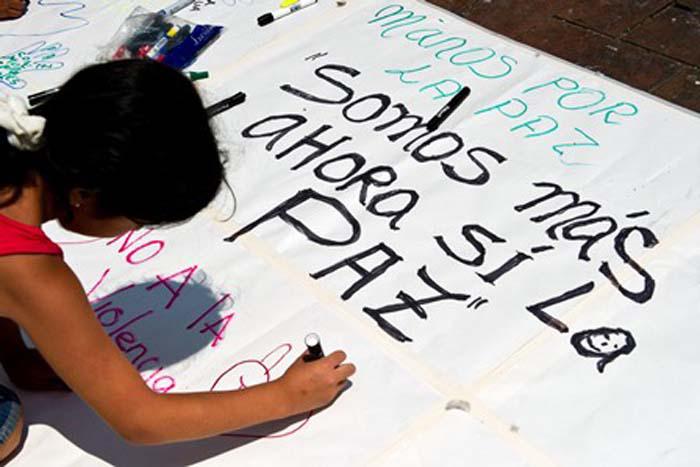 Manos POR
LA PAZ
"Somos más
ahora sí La
PAZ"
NO A LA
Violencia